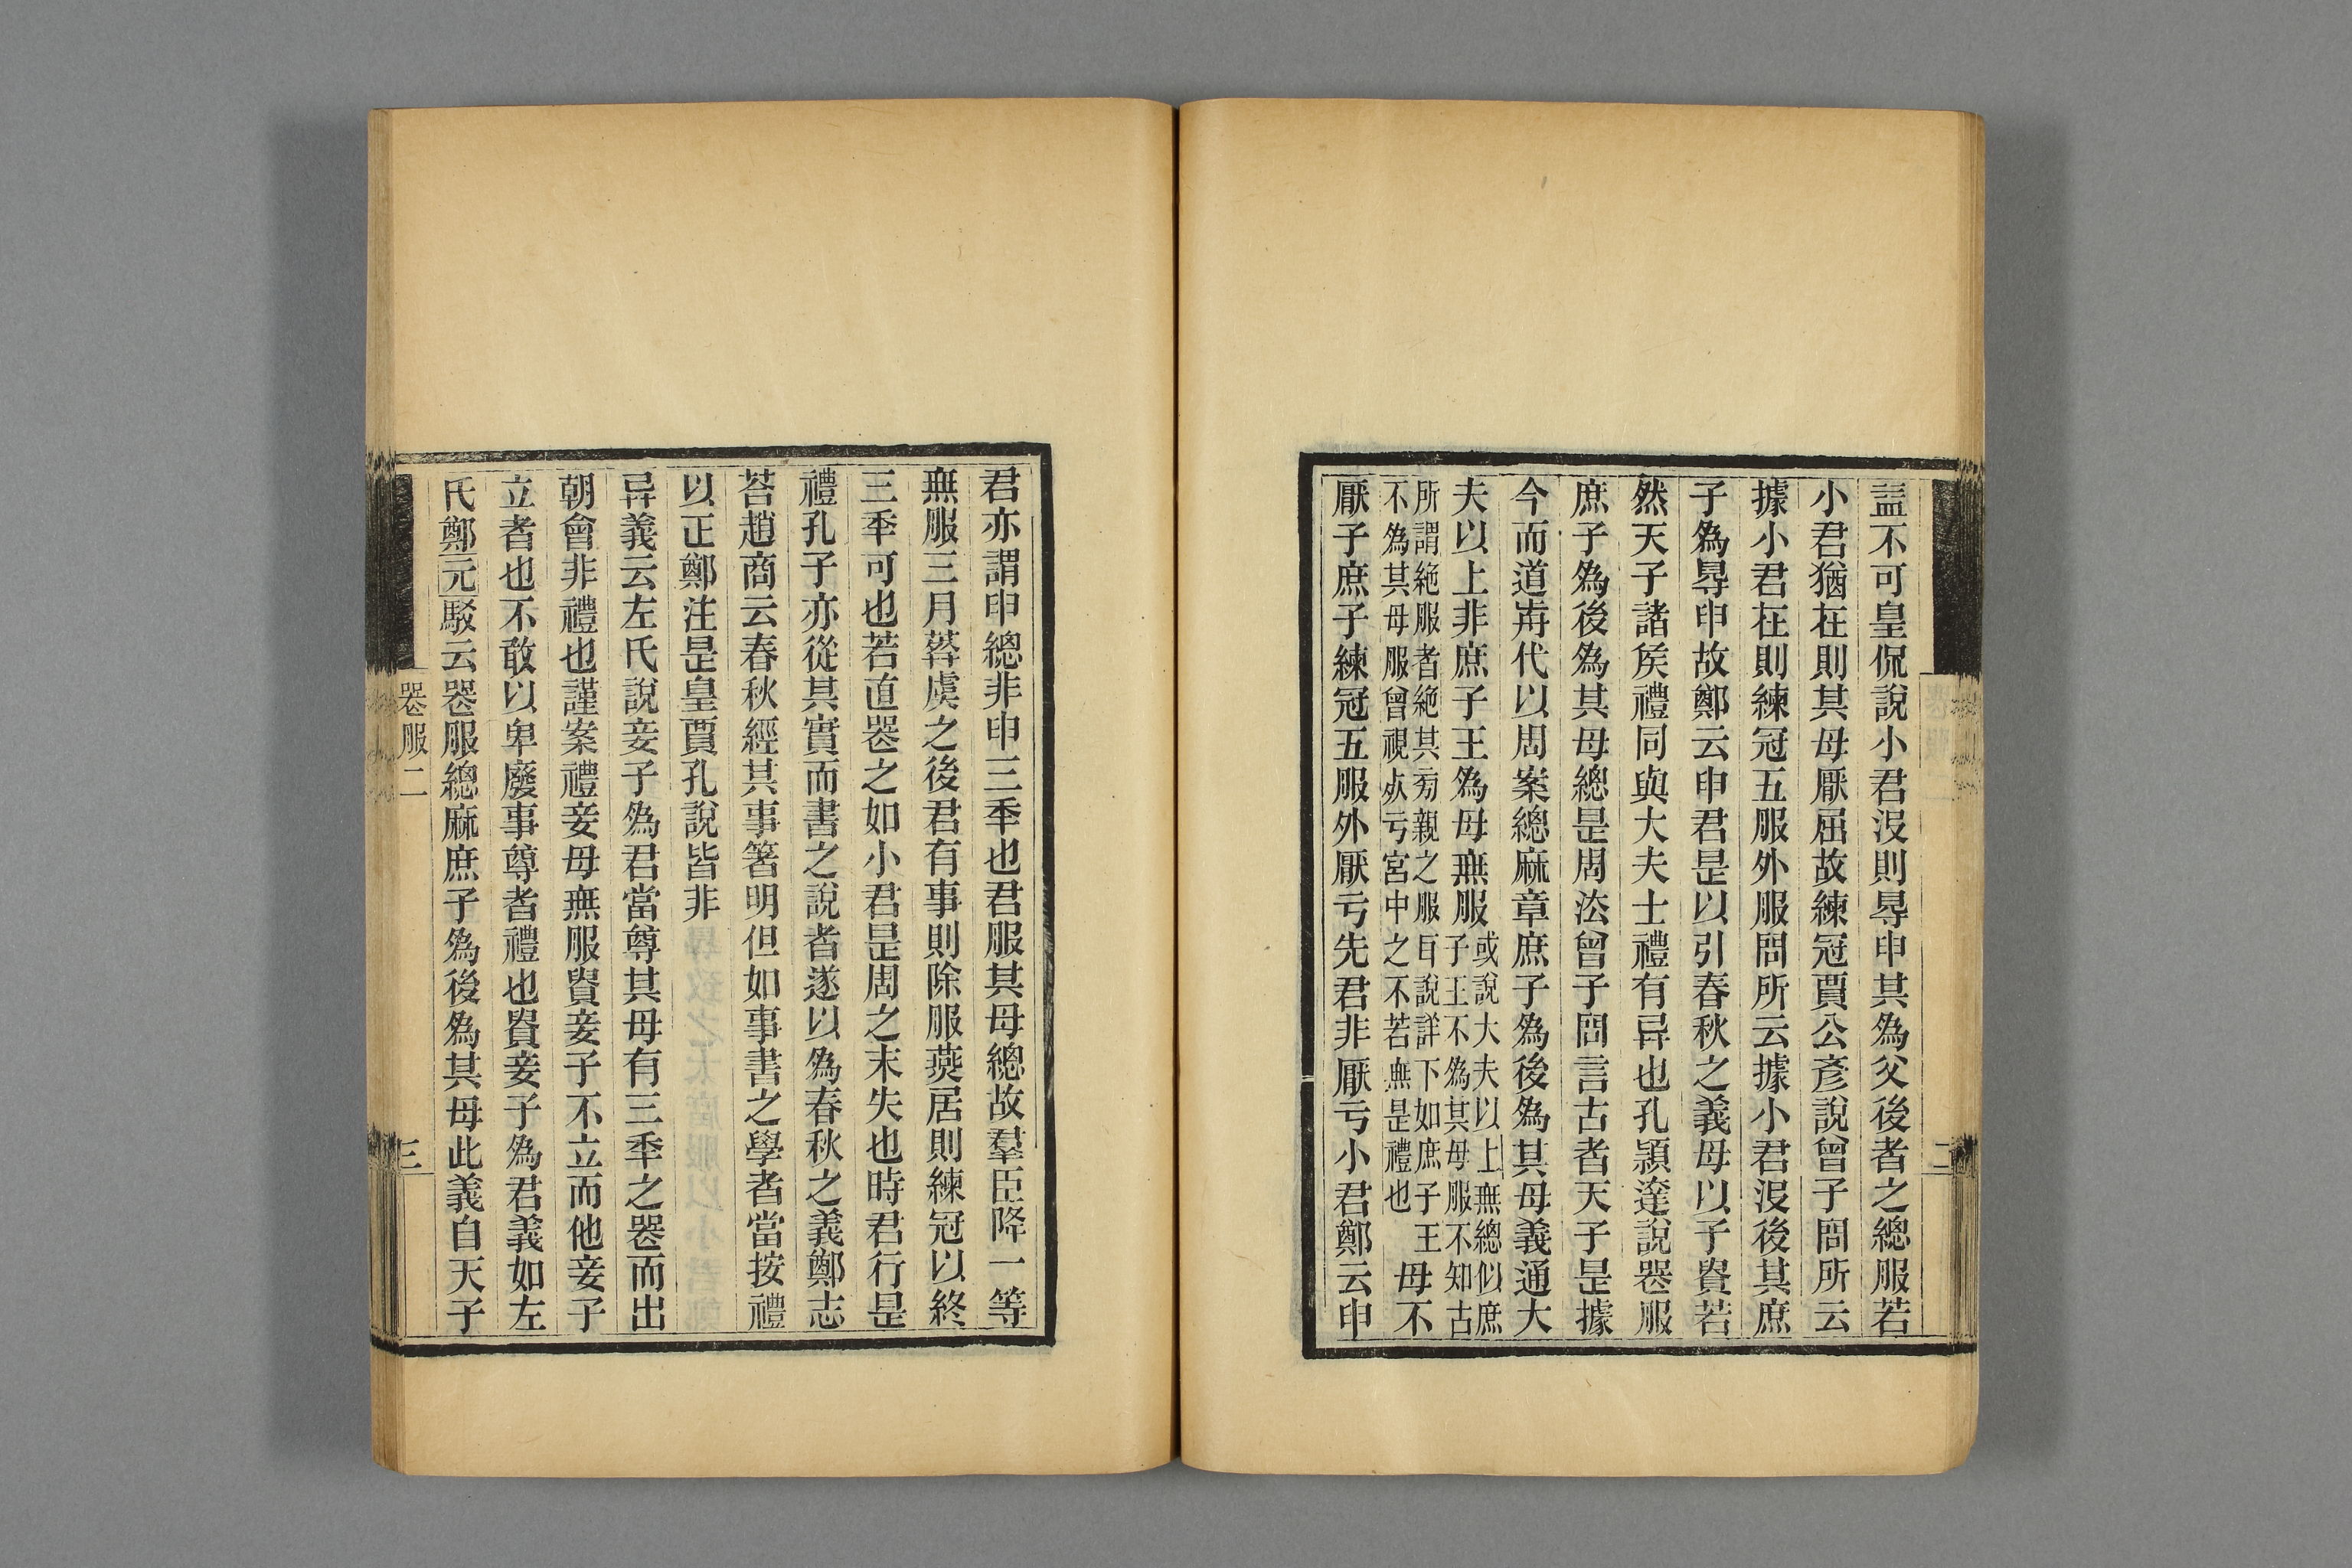 盍不可皇侃說小君沒則㝵申其為父後者之緦服若
小君猶在則其母厭屈故練冠賈公彥說曾子問所云
據小君在則練冠五服外服問所云據小君沒後其庶
子為㝵申故鄭云申君是以引春秋之義母以子貴若
然天子諸矦禮同與大夫士禮有异也孔潁達說喪服
庶子為後為其母緦是周㳒曾子問言古者天子是據
今而道歬代以周案緦麻章庶子為後為其母義通大
夫以上非庶子王為母無服或說大夫以上無緦似庶
子王不為其母服不知古
所謂絕服者絕其㫄親之服耳說詳下如庶子王
不為其母服曾視㱃亏宮中之不若無是禮也
母不
厭子庶子練冠五服外厭亏先君非厭亏小君鄭云申
二
君亦謂申緦非申三秊也君服其母緦故羣臣降一等
無服三月葬虞之後君有事則除服燕居則練冠以終
三秊可也若直喪之如小君是周之末失也時君行是
禮孔子亦從其實而書之說者遂以為春秋之義鄭志
荅趙商云春秋經其事箸明但如事書之學者當按禮
以正鄭注是皇賈孔說皆非
异義云左氏說妾子為君當尊其母有三秊之喪而出
朝會非禮也謹案禮妾母無服貴妾子不立而他妾子
立者也不敢以卑廢事尊者禮也貴妾子為君義如左
氏鄭元駁云喪服緦麻庶子為後為其母此義自天子
喪服二
三